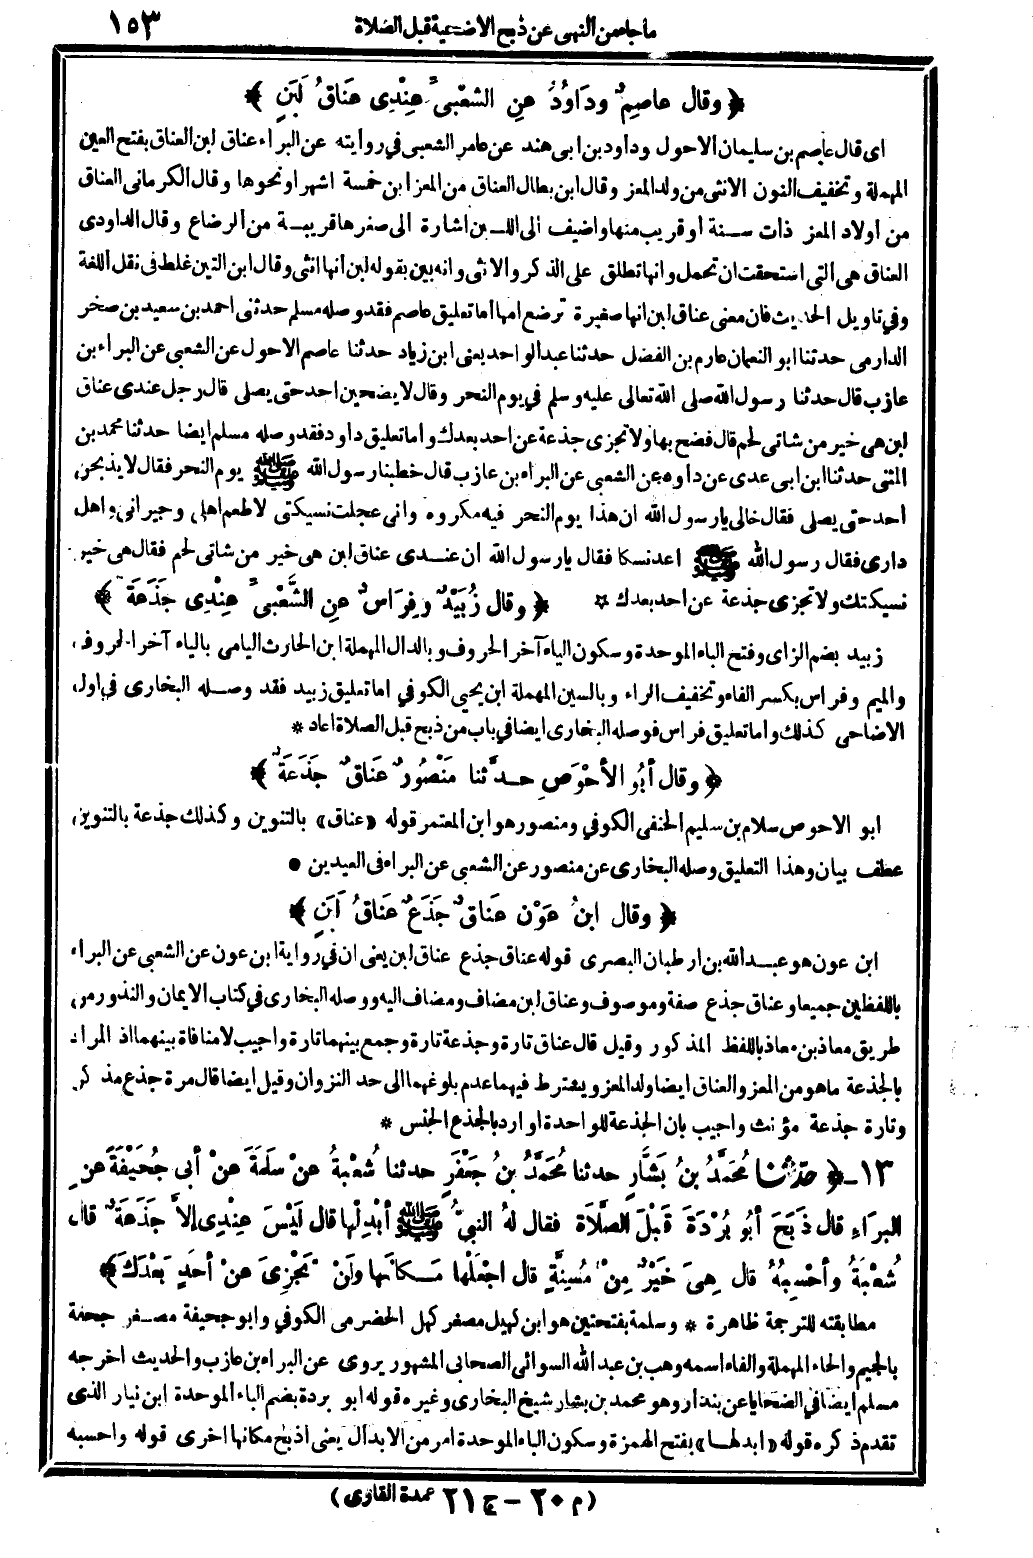 ما جاء من النهى عن ذبح الاضحية قبل الصلاة ١٥٣
﴿ وقال عاصِمٌ ودَاوُدُ عنِ الشَّعْبىِّ عِنْدِى عَناقُ لَبَنٍ ﴾
اى قال عاصم بن سليمان الأحول وداود بن ابى هند عن عامر الشعبى في روايته عن البراء عناق لبن العناق بفتح العين
المهملة وتخفيف النون الانثى من ولد المعز وقال ابن بطال العناق من المعز ابن خمسة اشهر او نحوها وقال الكرمانى العناق
من أولاد المعز ذات سنة أو قريب منها واضيف الى اللبن اشارة الى صغرها قريبة من الرضاع وقال الداودى
العناق هى التى استحقت ان تحمل وانها تطلق على الذكر والانثى وانه بين بقوله لبن أنها انثى وقال ابن التين غلط فى نقل اللغة
وفي تاويل الحديث فان معنى عناق لبن انها صغيرة ترضع امها أما تعليق عاصم فقد وصله مسلم حدثنى احمد بن سعيد بن صخر
الدارمى حدثنا ابو النعمان عارم بن الفضل حدثنا عبد الواحد يعنى ابن زياد حدثنا عاصم الاحول عن الشعبى عن البراء بن
عازب قال حدثنا رسول الله صلى الله تعالى عليه وسلم في يوم النحر وقال لا يضحين احد حتى يصلى قال رجل عندى عناق
لبن هى خير من شاتى لحم قال فضح بها ولا تجزى جذعة عن احد بعدك واما تعليق داود فقد وصله مسلم ايضا حدثنا محمد بن
المثنى حدثنا ابن ابى عدى عن داود عن الشعبى عن البراء بن عازب قال خطبنا رسول الله ﷺ يوم النحر فقال لا يذبحن
أحد حتى يصلى فقال خالى يا رسول الله ان هذا يوم النحر فيه مكروه وانى عجلت نسيكتى لاطعم اهلى وجيرانى واهل
دارى فقال رسول الله ﷺ اعد نسكا فقال يا رسول الله ان عندى عناق لبن هى خير من شاتى لحم فقال هى خير
نسيكتك ولا تجزى جذعة عن احد بعدك * ﴿ وقال زُبَيْدٌ وفِرَاسٌ عنِ الشَّعْبىِّ عِنْدِى جَذَعَةٌ ﴾
زبيد بضم الزاى وفتح الباء الموحدة وسكون الياء آخر الحروف وبالدال المهملة ابن الحارث اليامى بالياء آخر الحروف
والميم وفراس بكسر الفاء وتخفيف الراء وبالسين المهملة ابن يحيى الكوفي اما تعليق زبيد فقد وصله البخارى في اول
الاضاحى كذلك واما تعليق فراس فوصله البخارى ايضا في باب من ذبح قبل الصلاة اعاد *
﴿ وقال أبُو الأحْوَصِ حدَّثنا مَنْصُورٌ عَناقٌ جَذَعَةٌ ﴾
ابو الاحوص سلام بن سليم الحنفى الكوفي ومنصور هو ابن المعتمر قوله «عناق» بالتنوين وكذلك جذعة بالتنوين
عطف بيان وهذا التعليق وصله البخارى عن منصور عن الشعبى عن البراء فى العيدين •
﴿ وقال ابنُ عَوْنٍ عَناقٌ جَذَعٌ عَناقُ لَبَنٍ ﴾
ابن عون هو عبد الله بن ارطبان البصرى قوله عناق جذع عناق لبن يعنى ان في رواية ابن عون عن الشعبى عن البراء
باللفظين جميعا وعناق جذع صفة وموصوف وعناق لبن مضاف ومضاف اليه ووصله البخارى في كتاب الايمان والنذور من
طريق معاذ بن معاذ باللفظ المذكور وقيل قال عناق تارة وجذعة تارة وجمع بينهما تارة واجيب لا منافاة بينهما اذ المراد
بالجذعة ما هو من المعز والعناق ايضا ولد المعز ويشترط فيهما عدم بلوغهما الى حد النزوان وقيل ايضا قال مرة جذع مذكر
وتارة جذعة مؤنث واجيب بان الجذعة للواحدة او اراد بالجذع الجنس *
١٣ - ﴿ حدَّثنا مُحَمَّدُ بنُ بَشَّارٍ حدثنا مُحَمَّدُ بنُ جَعْفَرٍ حدثنا شُعْبَةُ عنْ سَلَمَةَ عنْ أبى جُحَيْفَةَ عنِ
البرَاءِ قال ذَبَحَ أبُو بُرْدَةَ قَبْلَ الصَّلَاةِ فقال لهُ النبىُّ ﷺ أبْدِلْها قال لَيْسَ عِنْدِى إلاَّ جَذَعَةٌ قال
شُعْبَةُ وأحْسِبُهُ قال هِىَ خَيْرٌ مِنْ مُسِنَّةٍ قال اجْعَلْها مَكانَها ولَنْ تَجْزِىَ عنْ أحَدٍ بَعْدَكَ ﴾
مطابقته للترجمة ظاهرة * وسلمة بفتحتين هو ابن كهيل مصغر كهل الحضرمى الكوفي وابو جحيفة مصغر جحفة
بالجيم والحاء المهملة والفاء اسمه وهب بن عبد الله السوائى الصحابى المشهور يروى عن البراء بن عازب والحديث اخرجه
مسلم ايضا في الضحايا عن بندار وهو محمد بن بشار شيخ البخارى وغيره قوله ابو بردة بضم الباء الموحدة ابن نيار الذى
تقدم ذكره قوله «ابدلها» بفتح الهمزة وسكون الباء الموحدة امر من الابدال يعنى اذبح مكانها اخرى قوله واحسبه
(م ٢٠ - ج ٢١ عمدة القارى)